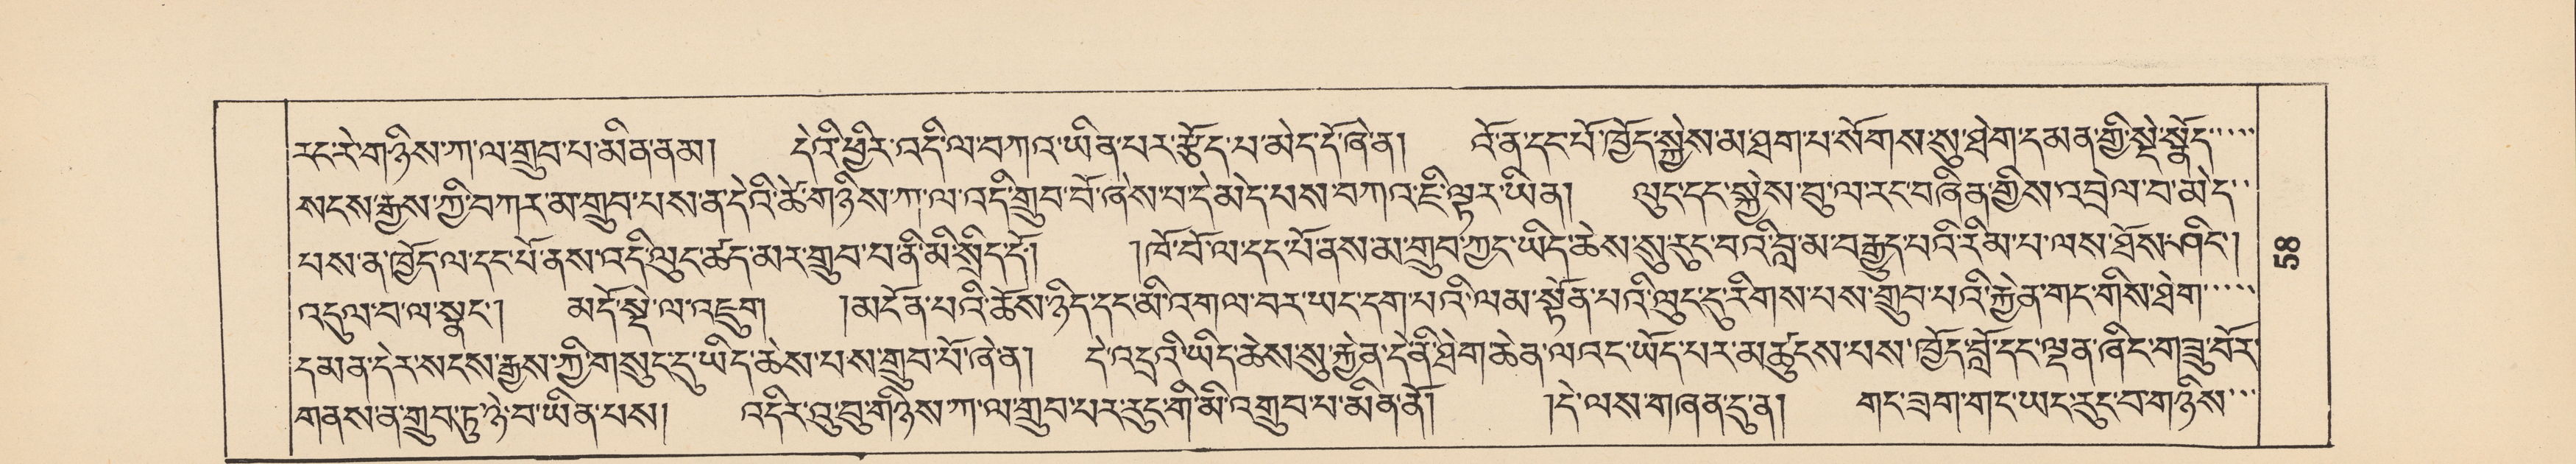 རང་རེ་གཉིས་ཀ་ལ་གྲུབ་པ་མིན་ནམ། དེའི་ཕྱིར་འདི་ལ་བཀའ་ཡིན་པར་རྩོད་པ་མེད་དོ་ཞེ་ན། འོ་ན་དང་པོ་ཁྱོད་སྐྱེས་མ་ཐག་པ་སོགས་སུ་ཐེག་དམན་གྱི་སྡེ་སྣོད་.....
སངས་རྒྱས་ཀྱི་བཀར་མ་གྲུབ་པས་ན་དེའི་ཚེ་གཉིས་ཀ་ལ་འདི་གྲུབ་བོ་ཞེས་པ་དེ་མེད་པས་བཀའ་ཇི་ལྟར་ཡིན། ལུང་དང་སྐྱེས་བུ་ལ་རང་བཞིན་གྱིས་འབྲེལ་བ་མེད་..
པས་ན་ཁྱོད་ལ་དང་པོ་ནས་འདི་ལུང་ཚད་མར་གྲུབ་པ་ནི་མི་སྲིད་དོ། །ཁོ་བོ་ལ་དང་པོ་ནས་མ་གྲུབ་ཀྱང་ཡིད་ཆེས་སུ་རུང་བའི་བླ་མ་བརྒྱུད་པའི་རིམ་པ་ལས་ཐོས་ཤིང་།
འདུལ་བ་ལ་སྣང་། མདོ་སྡེ་ལ་འཇུག །མངོན་པའི་ཆོས་ཉིད་དང་མི་འགལ་བར་ཡང་དག་པའི་ལམ་སྟོན་པའི་ལུང་དུ་རིགས་པས་གྲུབ་པའི་རྐྱེན་གང་གིས་ཐེག་.....
དམན་དེར་སངས་རྒྱས་ཀྱི་གསུང་དུ་ཡིད་ཆེས་པས་གྲུབ་པོ་ཞེ་ན། དེ་འདྲའི་ཡིད་ཆེས་སུ་རྐྱེན་དེ་ནི་ཐེག་ཆེན་ལའང་ཡོད་པར་མཚུངས་པས་ཁྱོད་བློ་དང་ལྡན་ཞིང་གཟུ་བོར་
གནས་ན་གྲུབ་ཏུ་ཉེ་བ་ཡིན་པས། འདིར་འུ་བུ་གཉིས་ཀ་ལ་གྲུབ་པར་རུང་གི་མི་འགྲུབ་པ་མིན་ནོ། །དེ་ལས་གཞན་དུ་ན། གང་ཟག་གང་ཡང་རུང་བ་གཉིས་...